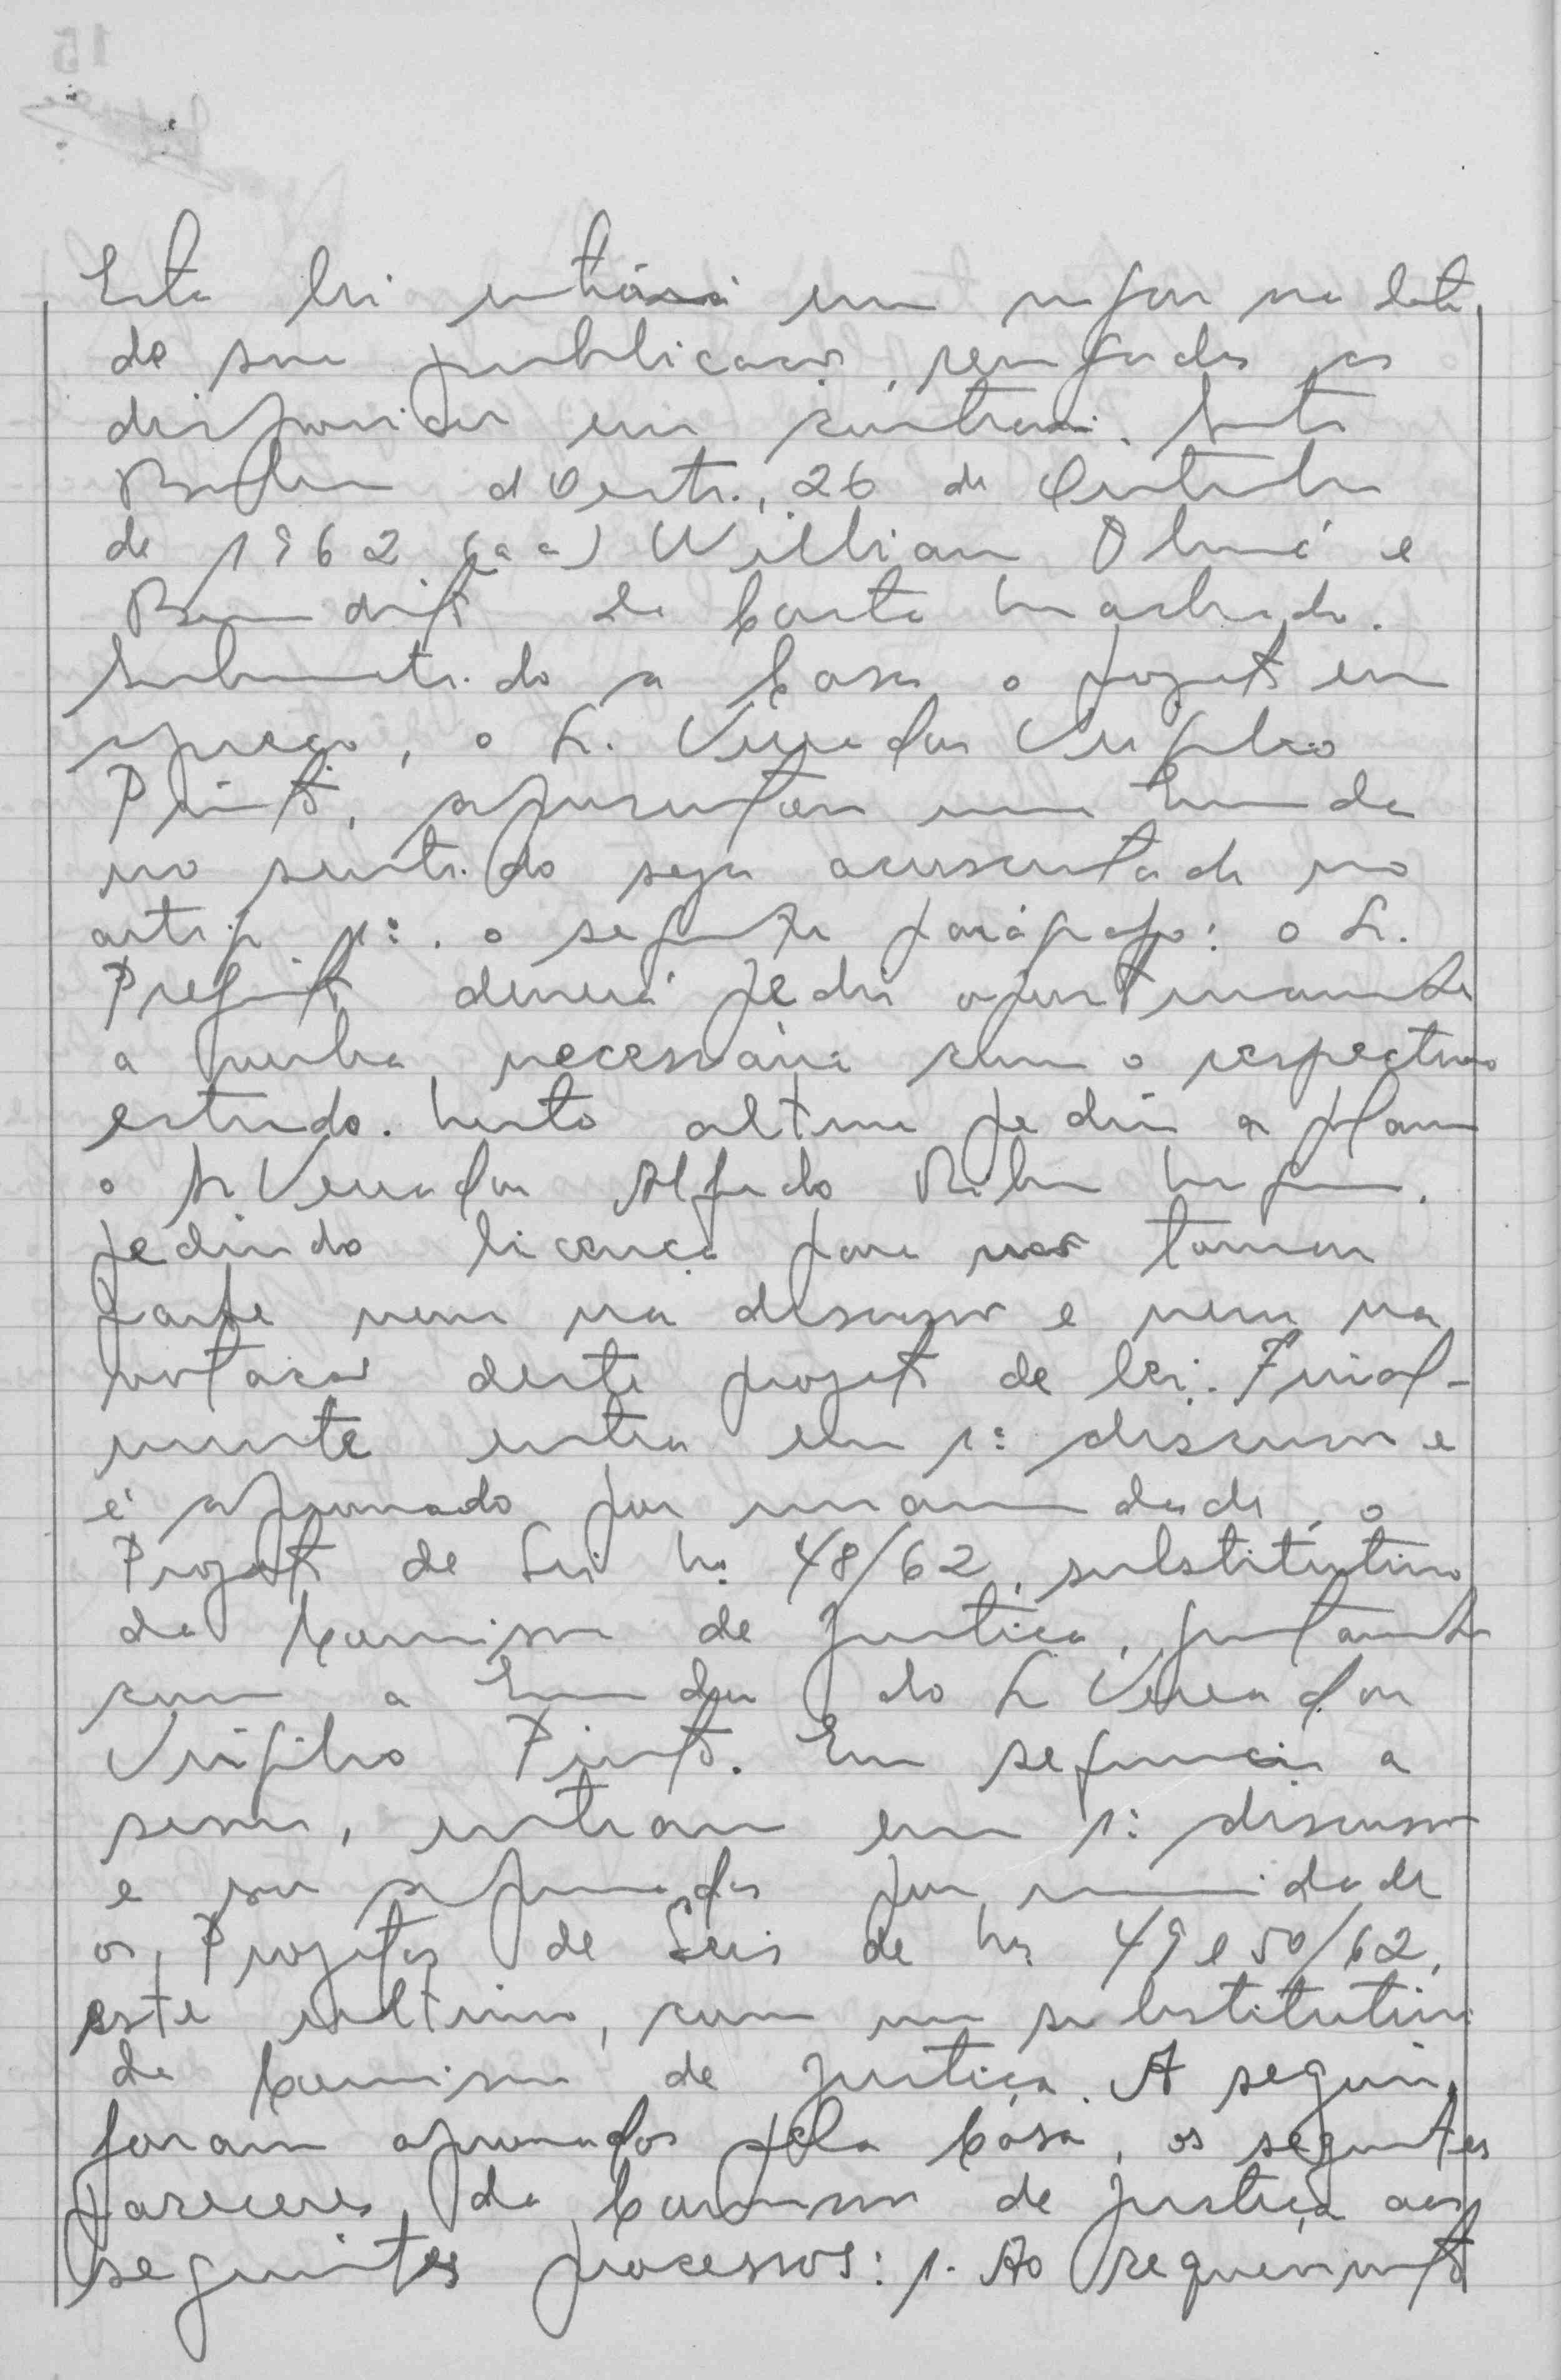 Esta lei entrará em vigor na data
de sua publicação, revogadas as
disposições em contrário. Santa
Barbara d'Oeste., 26 de Outubro
de 1962 (aa) Willian e
Benedito da Costa Machado.
Submetido a Casa o projeto em
apreço, o Sr. Vereador Virgilio
Pinto, apresentou uma Emenda
no sentido seja acrescentado no
artigo 1º. o seguinte parágrafo: o Sr.
Prefeito deverá pedir oportunamente
a verba necessária com o respectivo
estudo. Nesta altura pediu a palavra
o Sr Vereador Alfredo
pedindo licença para não tomar
parte nem na discussão e nem na
votação deste projeto de lei. Final-
mente entra em 1ª discussão e
é aprovado por unanimidade, o
Projeto de Lei Nº 48/62, substitutivo
da Comissão de Justiça, juntamente
com a Emenda do Sr Vereador
Virgilio Pinto. Em sequencia a
sessão, entram em 1ª discussão
e são aprovados por unanimidade
os Projetos de Leis de Nºs 49 e 50/62,
este ultimo, com um substitutivo
da Comissão de Justiça. A seguir,
foram aprovados pela Casa, os seguintes
pareceres da Comissão de Justiça aos
seguintes processos: 1. Ao requerimento